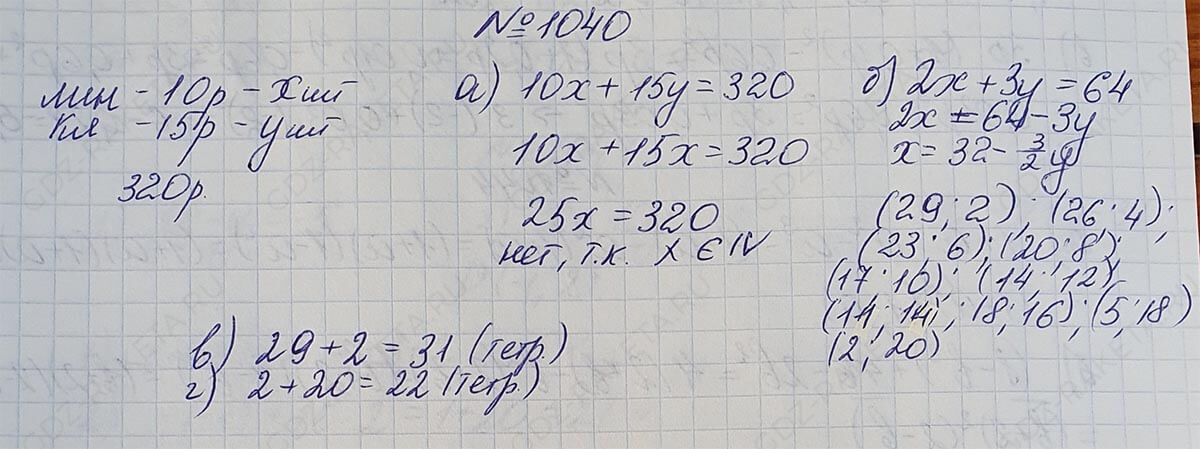 №1040
лин - 10р - x шт
кл - 15р - y шт
320р.
а) 10x + 15y = 320
10x + 15x = 320
25x = 320
нет, т.к. x ∈ N
б) 2x + 3y = 64
2x = 64 - 3y
x = 32 - 3/2 y
(29; 2); (26; 4);
(23; 6); (20; 8);
(17; 10); (14; 12)
(11; 14); (8; 16); (5; 18)
(2; 20)
в) 29 + 2 = 31 (тетр.)
г) 2 + 20 = 22 (тетр)